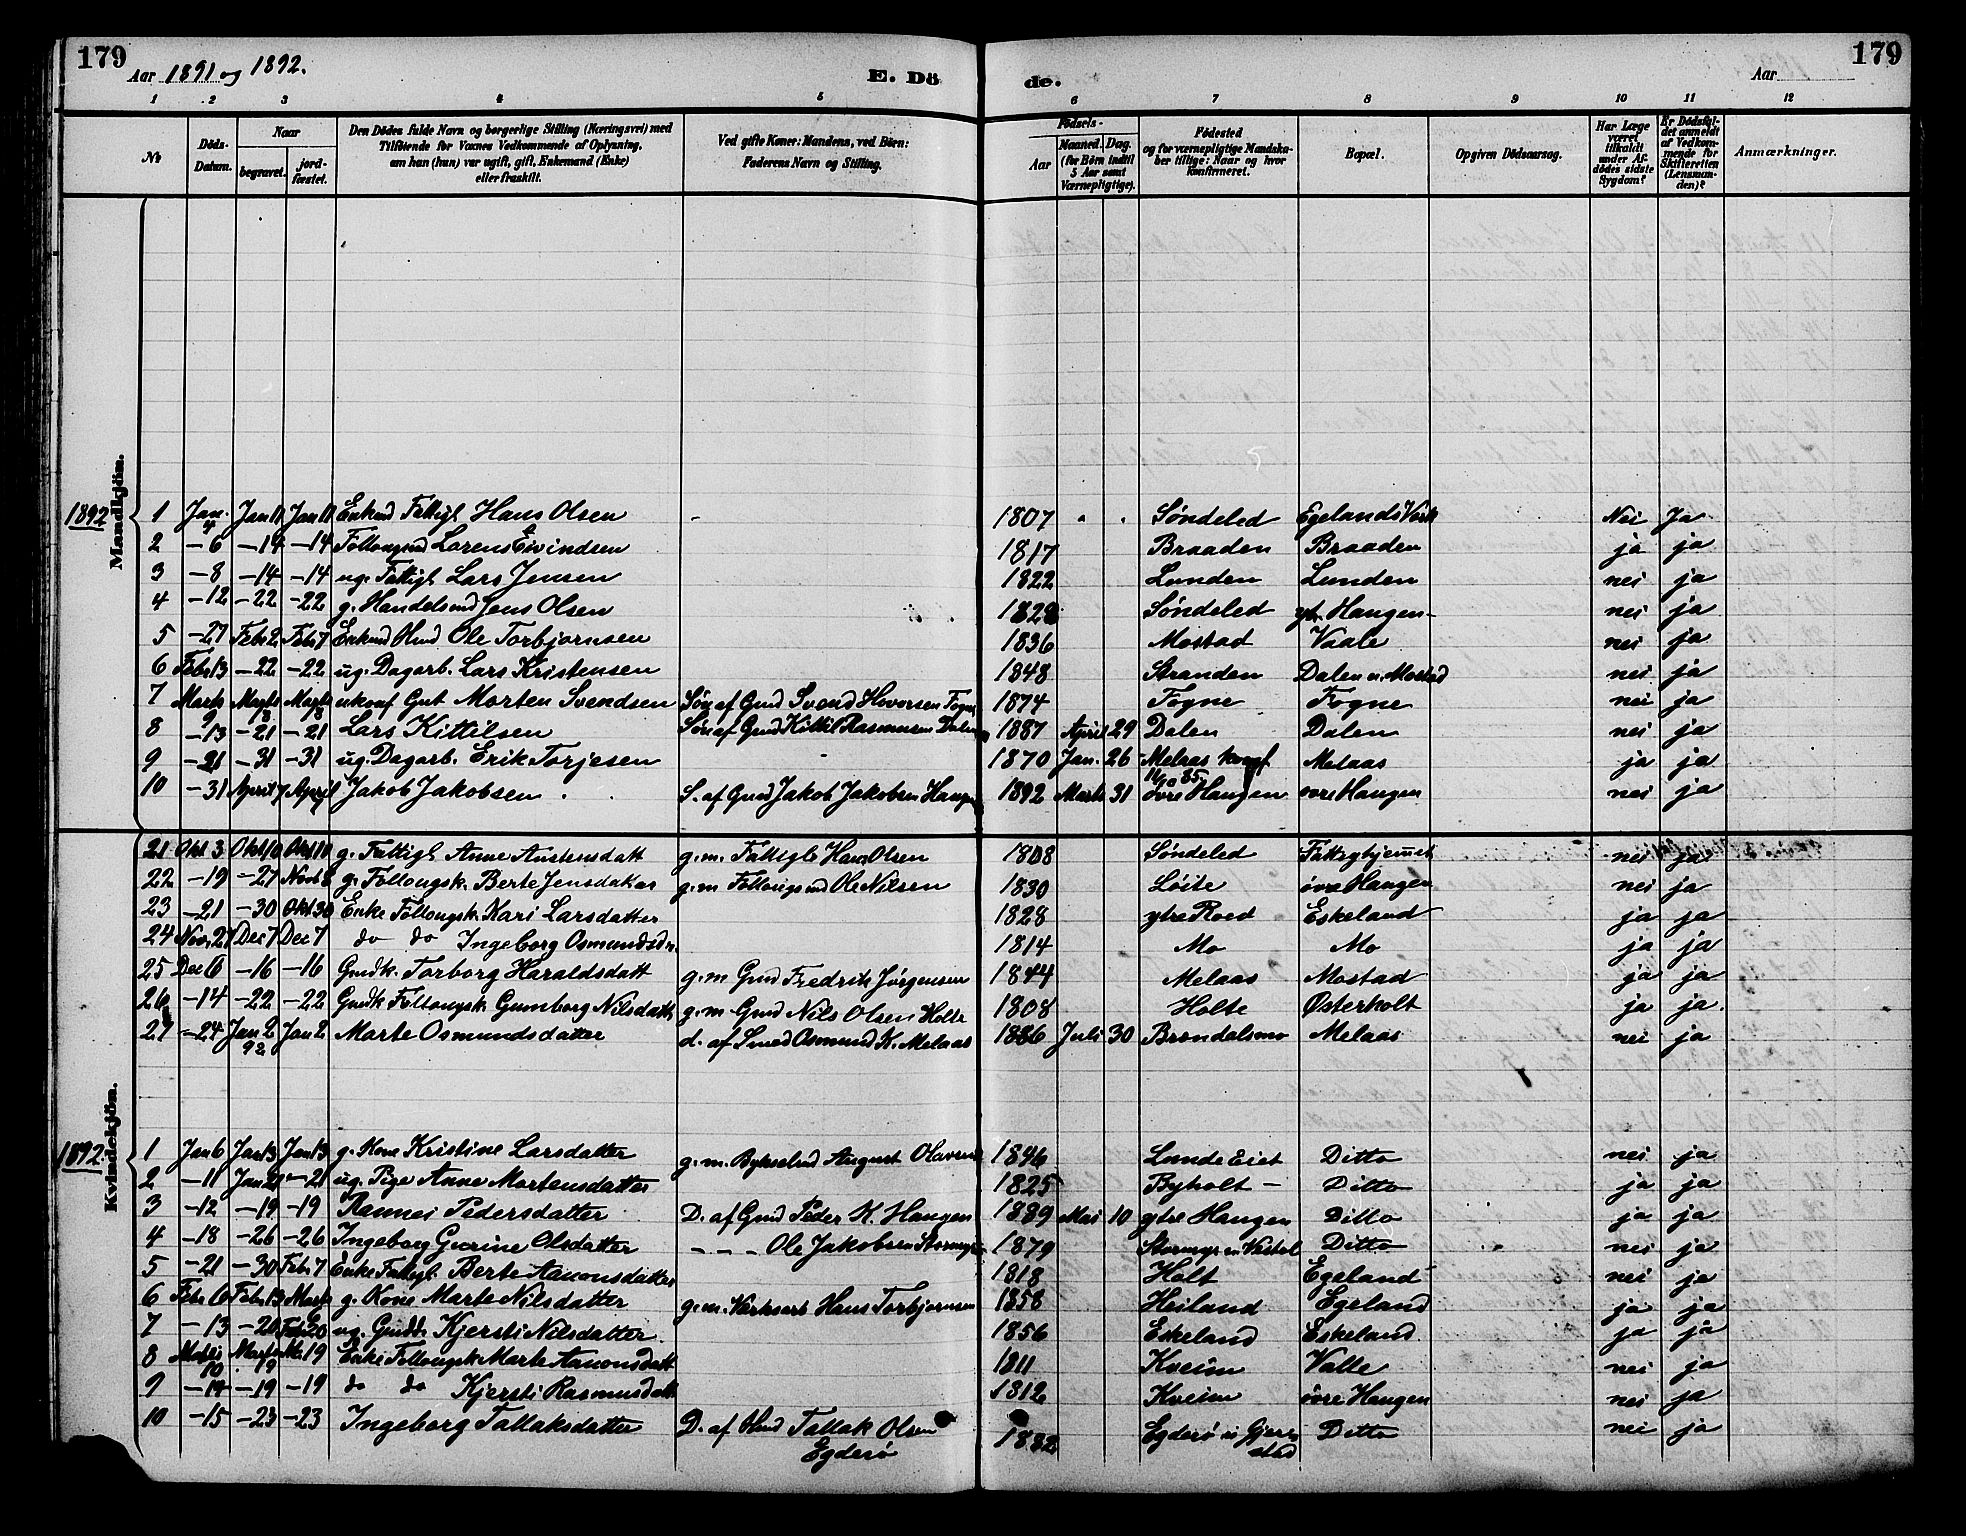 179
Aar 1891 og 1892.
E. Dö
de.
Aar
179
1 2 3 4 5 6 7 8 9 10 11 12
№
Döds-Datum.
Naar
begravet.
jordfæstet.
Den Dödes fulde Navn og borgerlige Stilling (Næringsvei) med
Tilföiende for Voxnes Vedkommende af Oplysning,
om han (hun) var ugift, gift, Enkemand (Enke)
eller fraskilt.
Ved gifte Koner: Mandens, ved Börn:
Faderens Navn og Stilling.
Födsels-
Aar
Maaned. Dag.
(for Börn indtil
5 Aar samt
Værnepligtige).
Födested
og for værnepligtige Mandska-
ber tillige: Naar og hvor
konfirmeret.
Bopæl.
Opgiven Dödsaarsag.
Har Læge
været
tilkaldt
under Af-
dödes sidste
Sygdom?
Er Dödsfal-
det anmeldt
af Vedkom-
mende for
Skifteretten
(Lensman-
den)?
Anmærkninger.
Mandkjön.
1892
1 Jan. 4 Jan 11 Jan 11 Enkmd Fattigl Hans Olsen - 1807 Søndeled Egelands Værk Nei Ja
2 -6 -14 -14 Føllaugsmd Lorens Eivindsen 1817 Braaden Braaden ja ja
3 -8 -14 -14 ug. Fattigl Lars Jensen 1822 Lunden Lunden nei ja
4 -12 -22 -22 g. Handelsmd Jens Olsen 1828 Søndeled ytr. Haugen nei ja
5 -27 Febr 2 Febr 7 Enkmd Hmd Ole Torbjørnsen 1836 Mostad Vaale nei ja
6 Febr 13 -22 -22 ug. Dagarb. Lars Kristensen 1848 Stranden Dalen u. Mostad nei ja
7 Marts 9 Marts 8 Marts 8 ukonf Gut Morten Svendsen Søn af Gmd Svend Hovorsen Fogne 1874 Fogne Fogne nei ja
8 -13 -21 -21 Lars Kittilsen Søn af Gmd Kittil Rasmussen Dalen 1887 April 29 Dalen Dalen nei ja
9 -21 -31 -31 ug. Dagarb. Erik Torjesen 1870 Jan. 26 Melaas konf 11/10 85 Melaas ja ja
10 -31 April 7 April 7 Jakob Jakobsen S. af Gmd Jakob Jakobsen Haugen 1892 Marts 31 øvre Haugen øvre Haugen nei ja
21 Okt 3 Okt 10 Okt 10 g. Fattigl Anne Austensdatt g.m. Fattigl Hans Olsen 1808 Søndeled Fattighjemmet nei ja
22 -19 -27 Novb 8 g. Føllaugsk. Berte Jensdatter g.m Føllaugsmd Ole Nilsen 1830 Løite øvre Haugen nei ja
23 -21 -30 Okt 30 Enke Føllaugsk. Kari Larsdatter 1828 ytre Roed Eskeland ja ja
24 Nov. 27 Dec 7 Dec 7 do do Ingeborg Osmundsdr. 1814 Mo Mo ja ja
25 Dec 6 -16 -16 Gmdk. Torborg Haraldsdatt g.m Gmd Fredrik Jørgensen 1844 Melaas Mostad ja ja
26 -14 -22 -22 Gmdk Føllaugsk. Gumborg Nilsdatt g.m. Gmd Nils Olsen Holte 1808 Holte Østerholt ja ja
27 -24 Jan 2 92 Jan 2 Marte Osmundsdatter d. af Smed Osmund K. Melaas 1886 Juli 30 Brøndalsmo Melaas nei ja
Kvindekjön.
1892
1 Jan 6 Jan 13 Jan 13 g. Kone Kristine Larsdatter g.m. Bykselmd August Olavsen 1846 Lunde Eiet Ditto nei ja
2 -11 Jan 21 -21 ug. Pige Anne Mortensdatter 1825 Byholt - Ditto ja ja
3 -12 -19 -19 Rannei Pedersdatter D. af Gmd Peder K. Haugen 1889 Mai 10 ytre Haugen Ditto ja ja
4 -18 -26 -26 Ingeborg Gurine Olsdatter - - - Ole Jakobsen Stormyr 1879 Stormyr u Vestøl Ditto nei ja
5 -21 -30 Febr 7 Enke Fattigl. Berte Aanonsdatter 1818 Holt Egeland nei ja
6 Febr 6 Febr 13 Marts g. Kone Marte Nilsdatter g.m. Værksarb Hans Torbjørnsen 1858 Heiland Egeland ja ja
7 -13 -20 Febr 20 ug. Gmdd. Kjersti Nilsdatter 1856 Eskeland Eskeland ja ja
8 Marts 10 Marts 19 Mr. 19 Enke Føllaugsk Marte Aanonsdatt 1811 Kveim Valle nei ja
9 -14 -19 -19 do do Kjersti Rasmusdatt 1812 Kveim øvre Haugen nei ja
10 -15 -23 -23 Ingeborg Tallaksdatter D. af Hmd Tallak Olsen Egderø 1882 Egderø i Gjerrestad Ditto nei ja